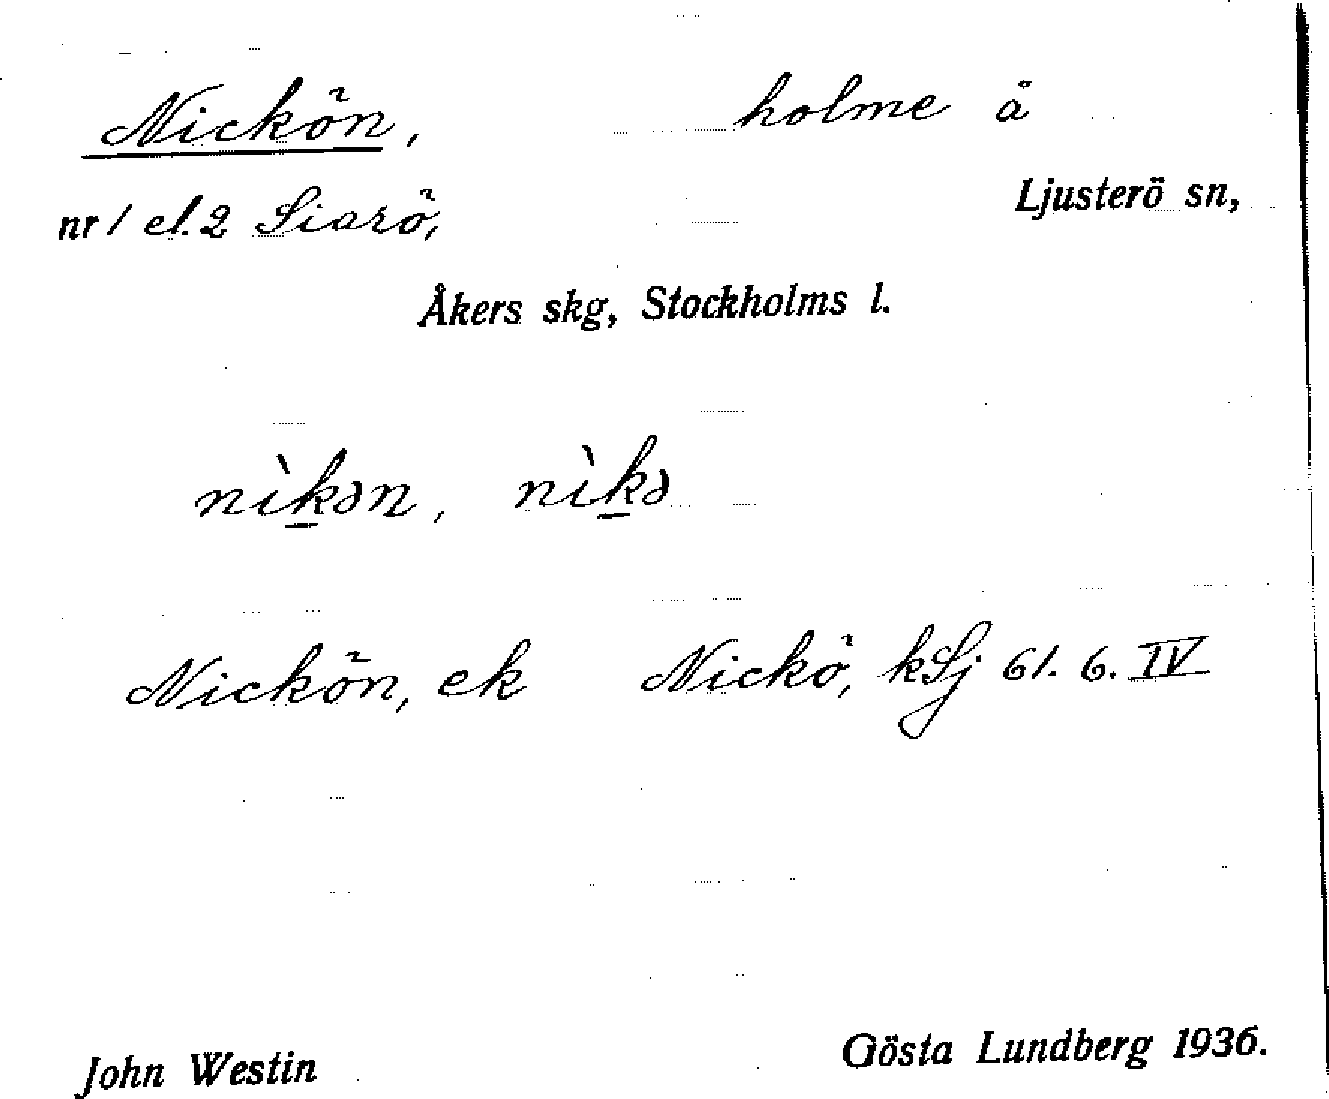 Nickön, holme å
nr 1 el. 2 Siarö, Ljusterö sn,
Åkers skg, Stockholms l.
nìkən, nìkə
Nickön, ek Nickö, kSj 61. 6. IV
John Westin Gösta Lundberg 1936.